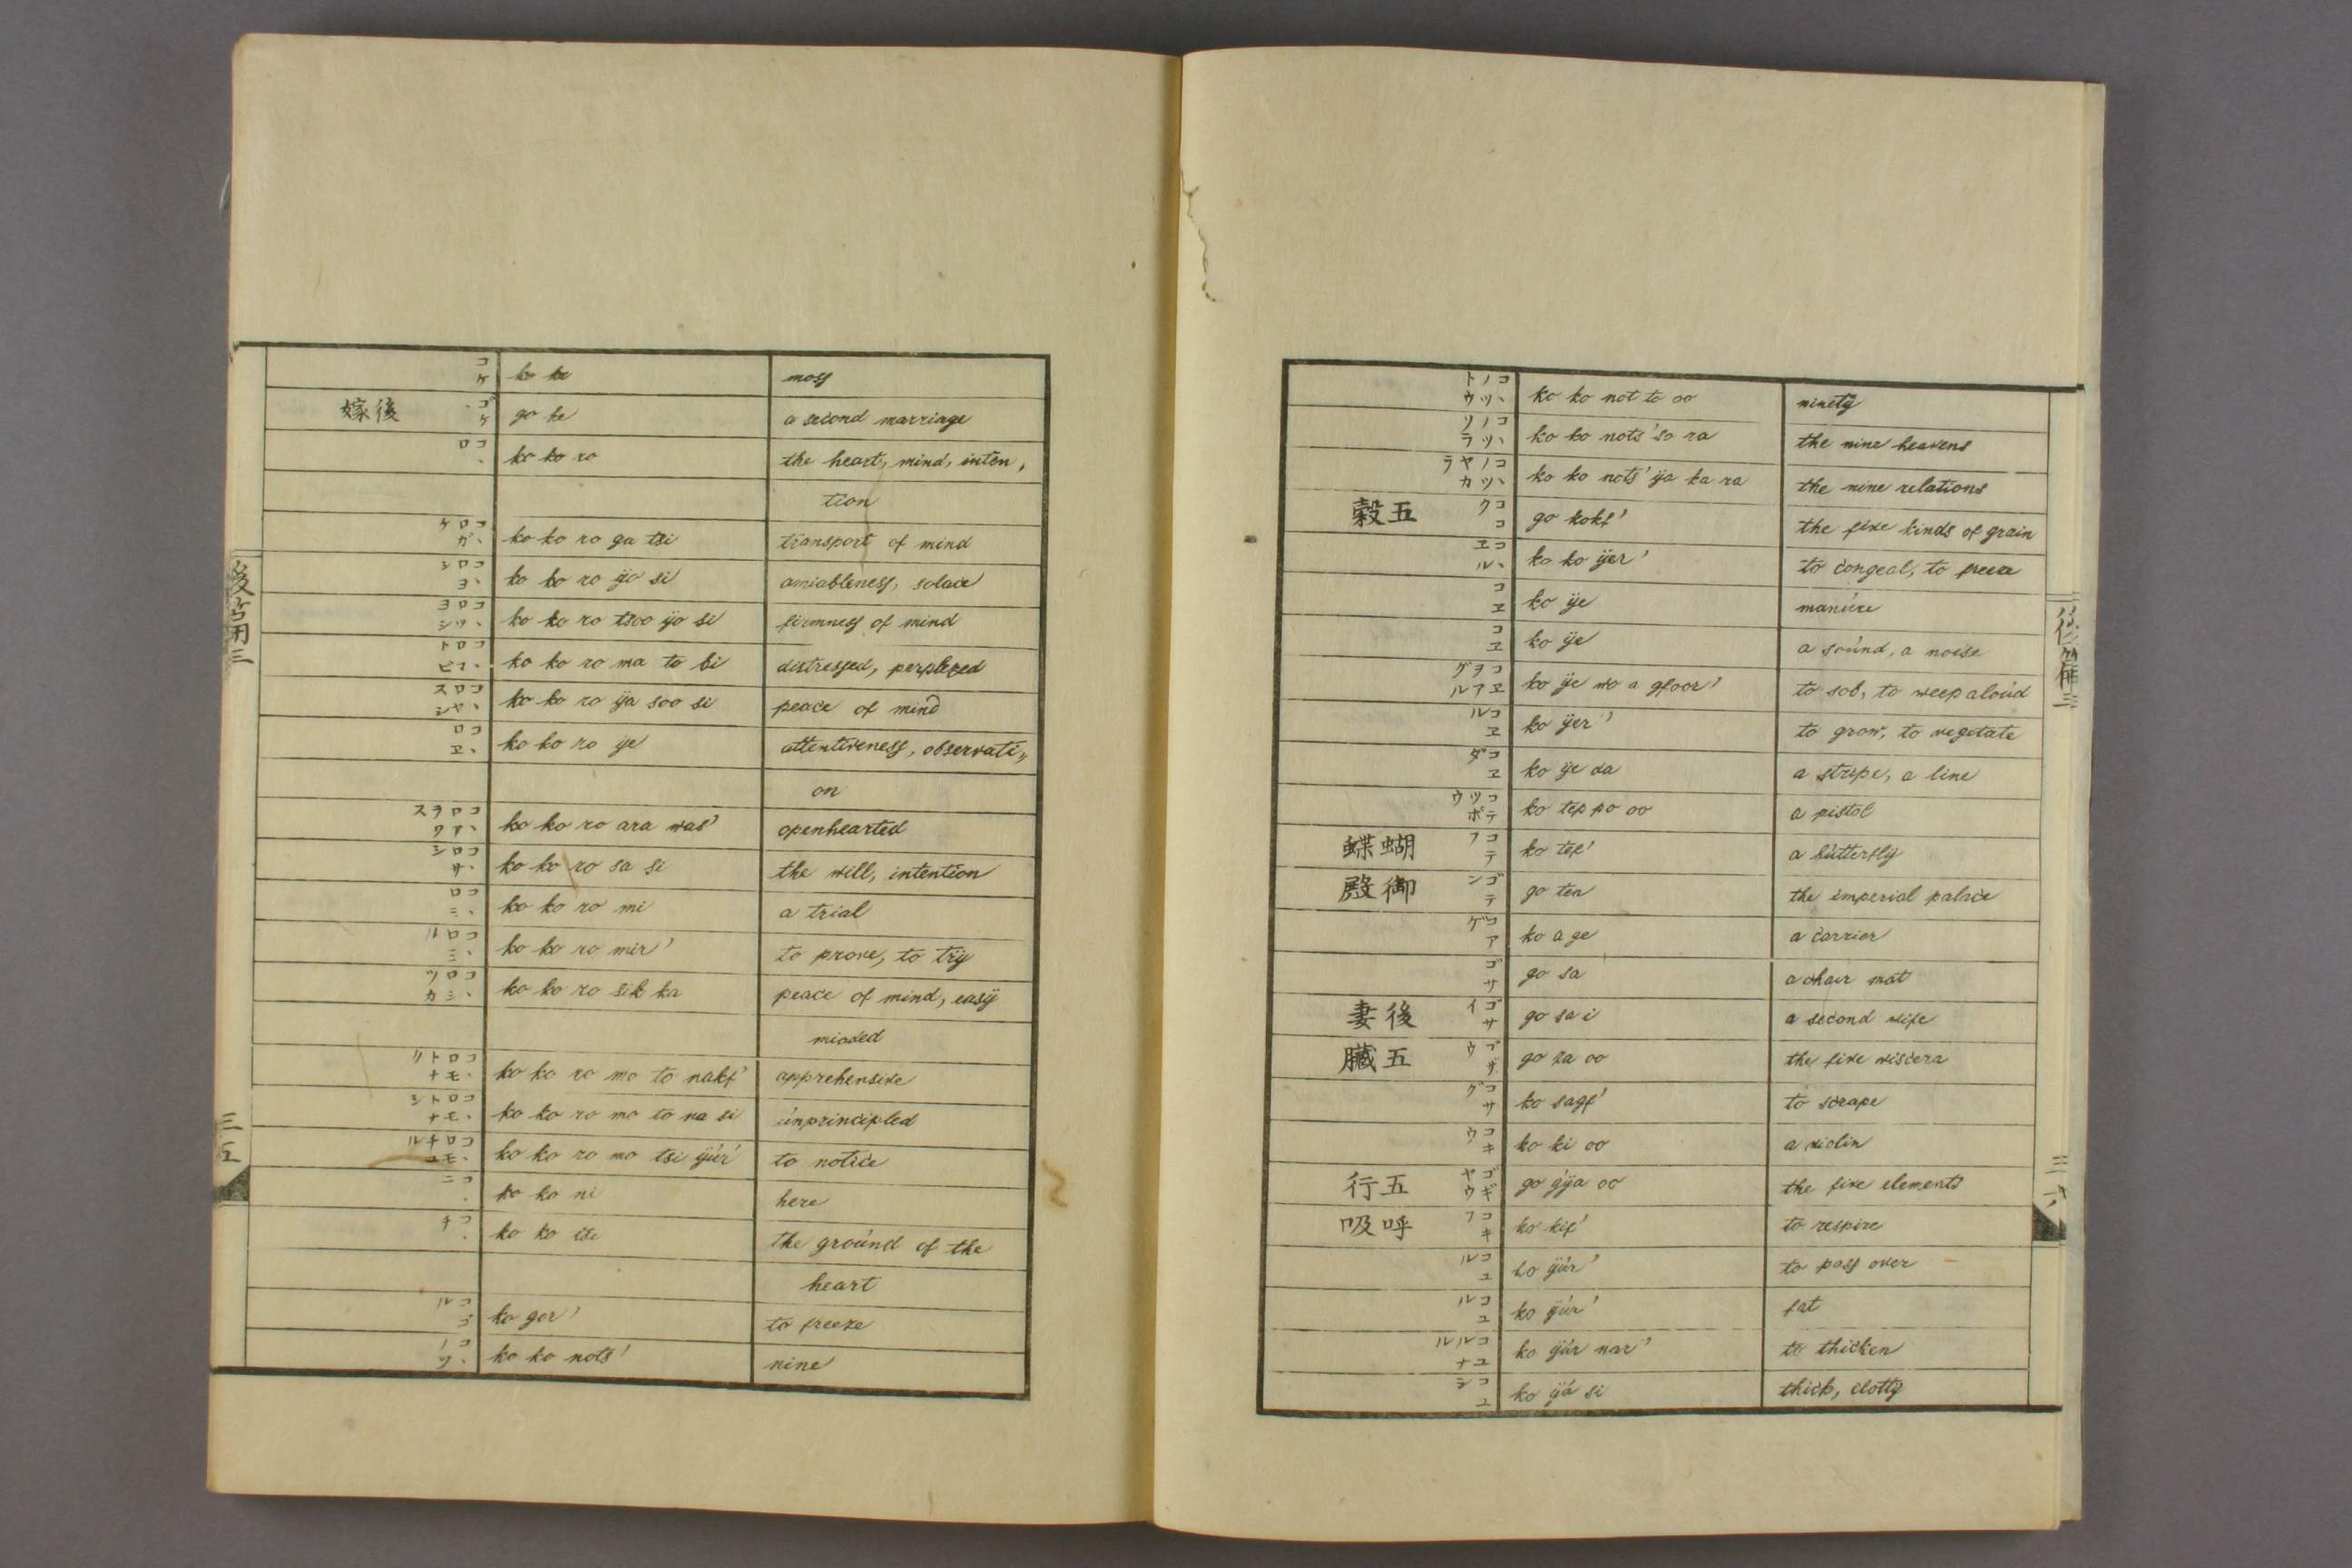 コケ ko ke moss
後嫁 ゴケ go ke a second marriage
コヽロ ko ko ro the heart, mind, inten,
tion
コヽロガケ ko ko ro ga tsi transport of mind
コヽロヨシ ko ko ro ÿo si amiableness, solace
コヽロツヨシ ko ko ro tsoo ÿo si firmness of mind
コヽロマトビ ko ko ro ma to bi distressed, perplexed
コヽロヤスシ ko ko ro ÿa soo si peace of mind
コヽロヱ ko ko ro ÿe attentiveness, observati,,
on
コヽロアラワス ko ko ro ara was' openhearted
コヽロサシ ko ko ro sa si the will, intention
コヽロミ ko ko ro mi a trial
コヽロミル ko ko ro mir' to prove, to trÿ
コヽロシツカ ko ko ro sik ka peace of mind, easÿ
minded
コヽロモトナク ko ko ro mo to nakf' apprehensive
コヽロモトナシ ko ko ro mo to na si unprincipled
コヽロモチユル ko ko ro mo tsi ÿúr' to notice
コヽニ ko ko ni here
コヽチ ko ko tsi the ground of the
heart
コゴル ko gor' to freeze
コヽノツ ko ko nots' nine
後篇 三
三五
コヽノツトウ ko ko not to oo ninetÿ
コヽノツソラ ko ko nots' so ra the nine heavens
コヽノツヤカラ ko ko nots' ÿa ka ra the nine relations
五穀 ココク go kokf' the five kinds of grain
コヽヱル ko ko ÿer' to congeal, to freeze
コヱ ko ÿe manure
コヱ ko ÿe a sound, a noise
コヱヲアグル ko ÿe wo a gfoor' to sob, to weep aloud
コヱル ko ÿer' to grow, to vegetate
コヱダ ko ÿe da a stripe, a line
コテツポウ ko tep po oo a pistol
蝴蝶 コテフ ko tef' a butterflÿ
御殿 ゴテン go ten the imperial palace
コアゲ ko a ge a carrier
ゴサ go sa a chair mat
後妻 ゴサイ go sa i a second wife
五臓 ゴザウ go za oo the five viscera
コサグ ko sagf' to scrape
コキウ ko ki oo a violin
五行 ゴギヤウ go gÿa oo the five elements
呼吸 コキフ ko kif' to respire
コユル ko ÿúr' to pass over
コユル ko ÿúr' fat
コユルナル ko ÿúr nar' to thicken
コユシ ko ÿú si thick, clottÿ
後篇 三
三六